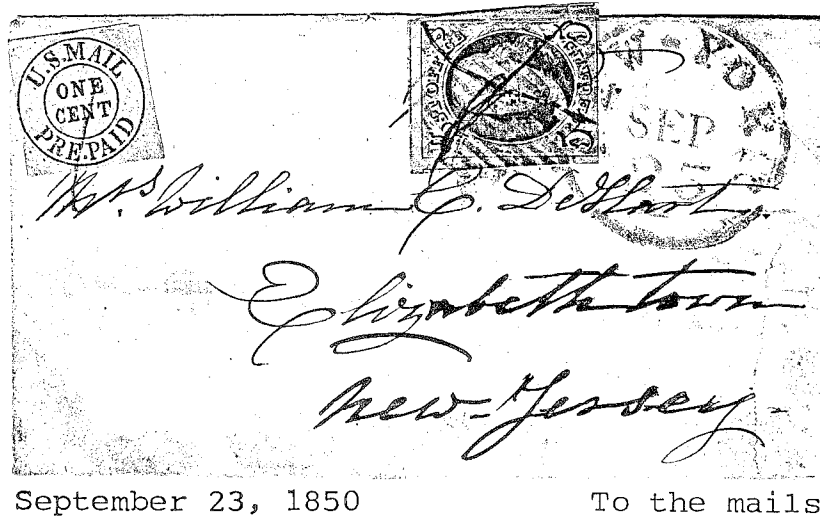 U.S.MAIL
ONE
CENT
PRE-PAID
POST OFFICE
NEW-YORK
SEP
Mrs. William C. DeHart.
Elizabethtown
New-Jersey-
September 23, 1850
To the mails